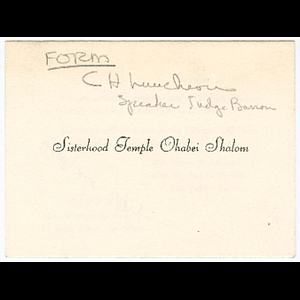 FORM
CH Luncheon
Speaker Judge Barron
Sisterhood Temple Ohabei Shalom